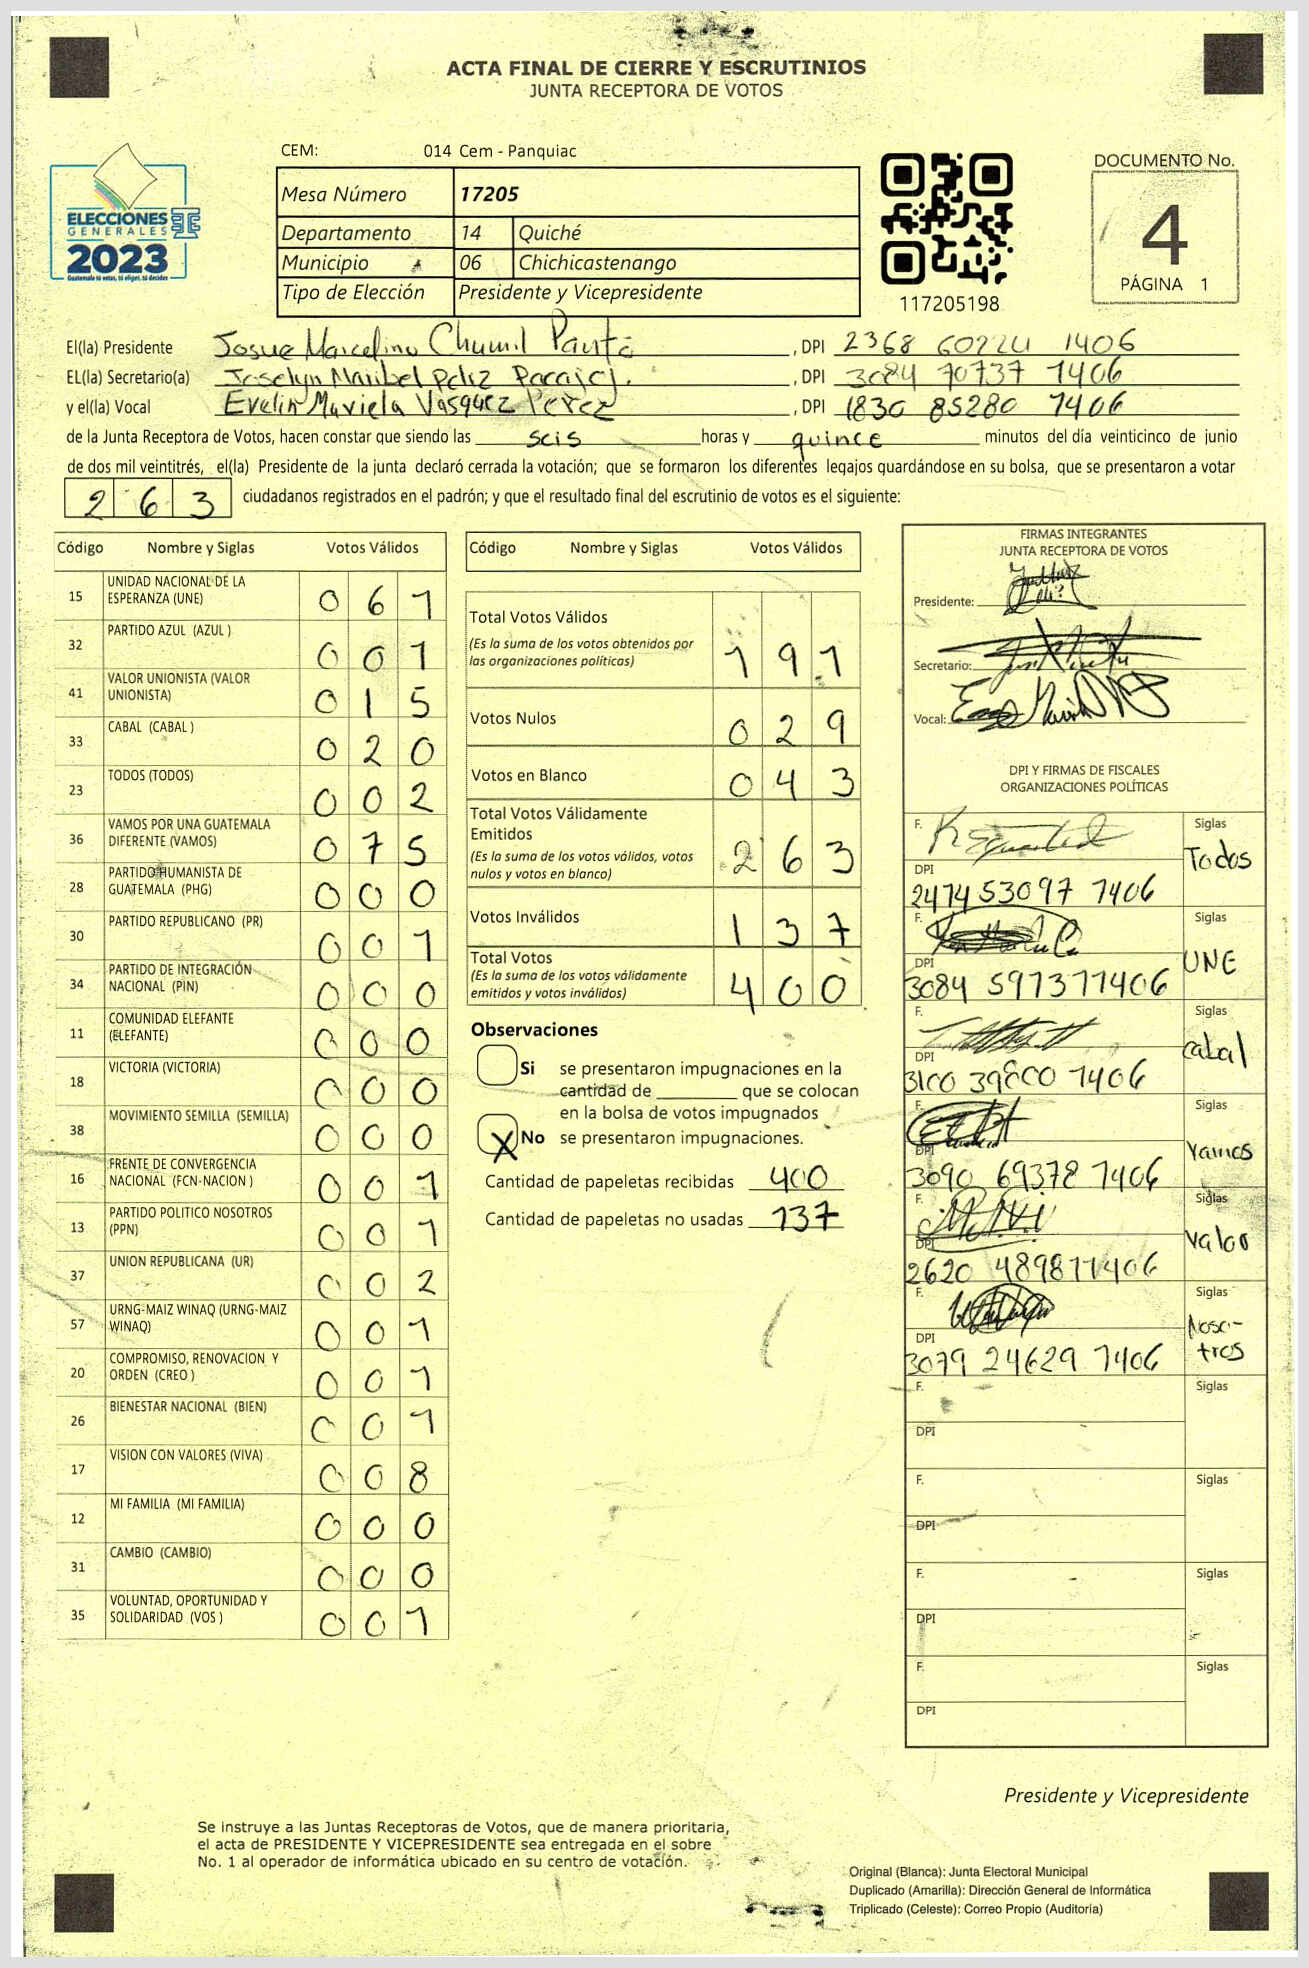 ACTA FINAL DE CIERRE Y ESCRUTINIOS
JUNTA RECEPTORA DE VOTOS
CEM: 014 Cem - Panquiac
ELECCIONES
GENERALES
2023
Guatemala tú votas, tú eliges, tú decides
Mesa Número 17205
Departamento 14 Quiché
Municipio 06 Chichicastenango
Tipo de Elección Presidente y Vicepresidente
117205198
DOCUMENTO No.
4
PÁGINA 1
El(la) Presidente Josue Marcelino Chumil , DPI 2368 1406
EL(la) Secretario(a) Joselyn Maribel , DPI 3084 70737 1406
y el(la) Vocal Evelin Mariela Vasquez Perez , DPI 1830 85280 1406
de la Junta Receptora de Votos, hacen constar que siendo las seis horas y quince minutos del día veinticinco de junio
de dos mil veintitrés, el(la) Presidente de la junta declaró cerrada la votación; que se formaron los diferentes legajos guardándose en su bolsa, que se presentaron a votar
263 ciudadanos registrados en el padrón; y que el resultado final del escrutinio de votos es el siguiente:
Código Nombre y Siglas Votos Válidos
15 UNIDAD NACIONAL DE LA ESPERANZA (UNE) 061
32 PARTIDO AZUL (AZUL ) 001
41 VALOR UNIONISTA (VALOR UNIONISTA) 015
33 CABAL (CABAL ) 020
23 TODOS (TODOS) 002
36 VAMOS POR UNA GUATEMALA DIFERENTE (VAMOS) 075
28 PARTIDO HUMANISTA DE GUATEMALA (PHG) 000
30 PARTIDO REPUBLICANO (PR) 001
34 PARTIDO DE INTEGRACIÓN NACIONAL (PIN) 000
11 COMUNIDAD ELEFANTE (ELEFANTE) 000
18 VICTORIA (VICTORIA) 000
38 MOVIMIENTO SEMILLA (SEMILLA) 000
16 FRENTE DE CONVERGENCIA NACIONAL (FCN-NACION ) 001
13 PARTIDO POLITICO NOSOTROS (PPN) 001
37 UNION REPUBLICANA (UR) 002
57 URNG-MAIZ WINAQ (URNG-MAIZ WINAQ) 001
20 COMPROMISO, RENOVACION Y ORDEN (CREO ) 001
26 BIENESTAR NACIONAL (BIEN) 001
17 VISION CON VALORES (VIVA) 008
12 MI FAMILIA (MI FAMILIA) 000
31 CAMBIO (CAMBIO) 000
35 VOLUNTAD, OPORTUNIDAD Y SOLIDARIDAD (VOS ) 001
Código Nombre y Siglas Votos Válidos
Total Votos Válidos
(Es la suma de los votos obtenidos por las organizaciones políticas) 191
Votos Nulos 029
Votos en Blanco 043
Total Votos Válidamente Emitidos
(Es la suma de los votos válidos, votos nulos y votos en blanco) 263
Votos Inválidos 137
Total Votos
(Es la suma de los votos válidamente emitidos y votos inválidos) 400
Observaciones
Si se presentaron impugnaciones en la
cantidad de ________ que se colocan
en la bolsa de votos impugnados
X No se presentaron impugnaciones.
Cantidad de papeletas recibidas 400
Cantidad de papeletas no usadas 137
FIRMAS INTEGRANTES
JUNTA RECEPTORA DE VOTOS
Presidente:
Secretario:
Vocal:
DPI Y FIRMAS DE FISCALES
ORGANIZACIONES POLÍTICAS
F. Siglas
Todos
DPI
2474 53097 1406
F. Siglas
UNE
DPI
3084 59737 1406
F. Siglas
cabal
DPI
3100 39800 1406
F. Siglas
Vamos
DPI
3090 69378 1406
F. Siglas
Valor
DPI
2620 48987 1406
F. Siglas
Noso-
tros
DPI
3079 24629 1406
F. Siglas
DPI
F. Siglas
DPI
F. Siglas
DPI
F. Siglas
DPI
Presidente y Vicepresidente
Se instruye a las Juntas Receptoras de Votos, que de manera prioritaria,
el acta de PRESIDENTE Y VICEPRESIDENTE sea entregada en el sobre
No. 1 al operador de informática ubicado en su centro de votación.
Original (Blanca): Junta Electoral Municipal
Duplicado (Amarilla): Dirección General de Informática
Triplicado (Celeste): Correo Propio (Auditoría)